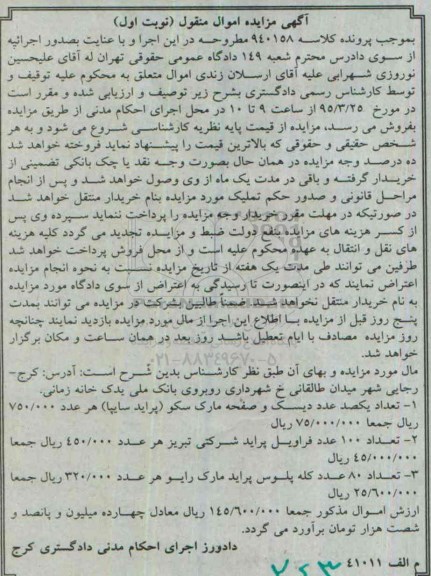 آگهی مزایده اموال منقول (نوبت اول)
بموجب پرونده کلاسه ۹۴۰۱۵۸ مطروحه در این اجرا و با عنایت بصدور اجرائیه
از سوی دادرس محترم شعبه ۱۴۹ دادگاه عمومی حقوقی تهران له آقای علیحسین
نوروزی شهرابی علیه آقای ارسلان زندی اموال متعلق به محکوم علیه توقیف و
توسط کارشناس رسمی دادگستری بشرح زیر توصیف و ارزیابی شده و مقرر است
در مورخ ۹۵/۳/۲۵ از ساعت ۹ تا ۱۰ در محل اجرای احکام مدنی از طریق مزایده
بفروش می رسد، مزایده از قیمت پایه نظریه کارشناسی شروع می شود و به هر
شخص حقیقی و حقوقی که بالاترین قیمت را پیشنهاد نماید فروخته خواهد شد
ده درصد وجه مزایده در همان حال بصورت وجه نقد یا چک بانکی تضمینی از
خریدار گرفته و باقی در مدت یک ماه از وی وصول خواهد شد و پس از انجام
مراحل قانونی و صدور حکم تملیک مورد مزایده بنام خریدار منتقل خواهد شد
در صورتیکه در مهلت مقرر خریدار وجه مزایده را پرداخت ننماید سپرده وی پس
از کسر هزینه های مزایده بنفع دولت ضبط و مزایده تجدید می گردد کلیه هزینه
های نقل و انتقال به عهده محکوم علیه است و از محل فروش پرداخت خواهد شد
طرفین می توانند طی مدت یک هفته از تاریخ مزایده نسبت به نحوه انجام مزایده
اعتراض نمایند که در اینصورت تا رسیدگی به اعتراض از سوی دادگاه مورد مزایده
به نام خریدار منتقل نخواهد شد ضمناً طالبین بشرکت در مزایده می توانند بمدت
پنج روز قبل از مزایده با اطلاع این اجرا از مال مورد مزایده بازدید نمایند چنانچه
روز مزایده مصادف با ایام تعطیل باشد روز بعد در همان ساعت و مکان برگزار
خواهد شد.
۰۲۱-۸۸۳۴۹۶۷۰-۵
مال مورد مزایده و بهای آن طبق نظر کارشناس بدین شرح است: آدرس: کرج-
رجایی شهر میدان طالقانی خ شهرداری روبروی بانک ملی یدک خانه زمانی.
۱- تعداد یکصد عدد دیسک و صفحه مارک سکو (پراید سایپا) هر عدد ۷۵۰/۰۰۰
ریال جمعا ۷۵/۰۰۰/۰۰۰ ریال
۲- تعداد ۱۰۰ عدد فراویل پراید شرکتی تبریز هر عدد ۴۵۰/۰۰۰ ریال جمعا
۴۵/۰۰۰/۰۰۰ ریال
۳- تعداد ۸۰ عدد کله پلوس پراید مارک رایو هر عدد ۳۲۰/۰۰۰ ریال جمعا
۲۵/۶۰۰/۰۰۰ ریال
ارزش اموال مذکور جمعا ۱۴۵/۶۰۰/۰۰۰ ریال معادل چهارده میلیون و پانصد و
شصت هزار تومان برآورد می گردد.
دادورز اجرای احکام مدنی دادگستری کرج
م الف ۴۱۰۱۱